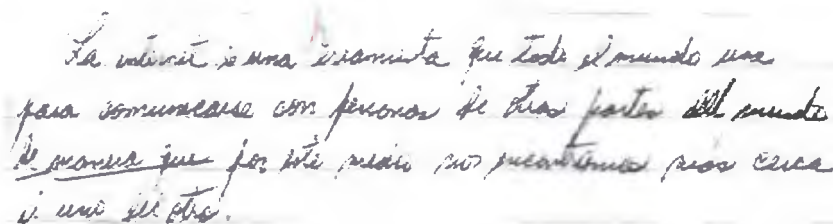 La internet es una eramienta que todo el mundo usa
para comunicarse con personas de otras partes del mundo
de manera que por este medio nos encontramos mas cerca
el uno del otro.